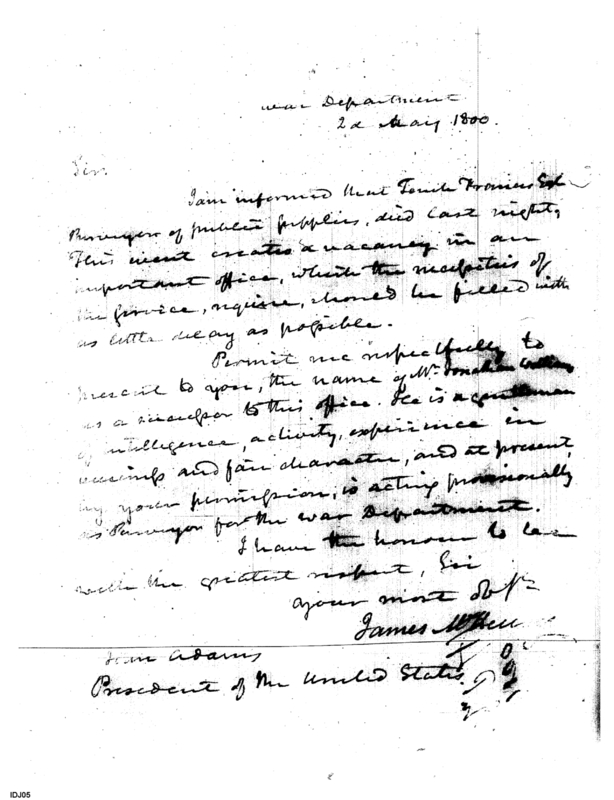 War Department
2d May 1800.
Sir.
I am informed that Tench Francis Esq
Purveyor of public supplies, died last night,
This event creates a vacancy in an
important office, which the necessities of
the service, require, should be filled with
as little delay as possible.
Permit me respectfully to
present to you, the name of Mr. Jonathan Williams
as a successor to this office. He is a gentleman
of intelligence, activity, experience in
business and fair character, and at present,
by your permission, is acting provisionally
as Purveyor for the War Department.
I have the honour to be
with the greatest respect, Sir
your most obt
James McHenry
John Adams
President of the United States.
IDJ05